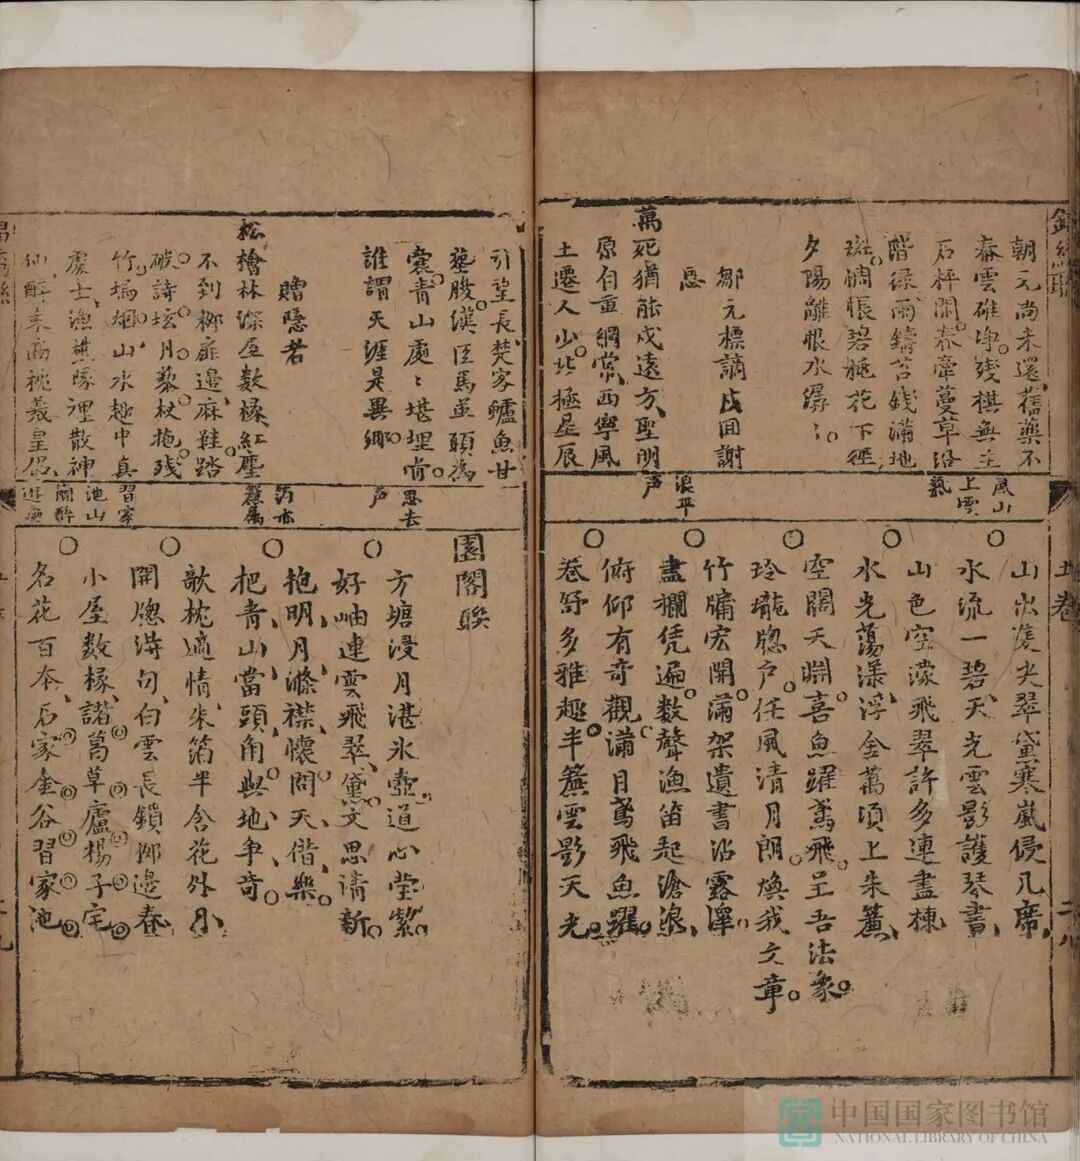 朝元尚未還舊藥不
春雲碓淨殘棋無主
石枰閒春牽蔓草沿
階綠雨鑄苔錢滿地
斑惆悵碧桃花下徑
夕陽離恨水潺〻
鄒元標謫戍回謝
恩
萬死猶能戍遠方聖明
原自重綱常西寧風
土遷人少北極星辰
風山
上雲
氣
浪平
声
上卷
山出尖翠黛寒嵐侵几席
水流一碧天光雲影護琴書
山色空濛飛翠許多連畫棟
水光蕩漾浮金萬頃上朱簾
空闊天淵喜魚躍鳶飛呈吾法象
玲瓏牕戶任風清月朗煥我文章
竹牗宏開滿架遺書沾露澤
畫欄凭遍數聲漁笛起滄浪
俯仰有奇觀滿目鳶飛魚躍
卷舒多雅趣半簾雲影天光
引望長楚家鱸魚甘
股漢臣馬革頭為
裳青山處〻堪埋骨
誰謂天涯是異鄉
贈隱者
松檜林深屋數椽紅塵
不到柳扉邊麻鞋踏
破詩坛月藜杖拖殘
竹塢烟山水趣中真
處士漁樵隊裡散神
仙醉來高枕羲皇侶
思去
声
習家
池山
園閣聯
方塘浸月湛氷壺道心堂紫
好岫連雲飛翠黛文思清新
抱明月滌襟懷問天偕樂
把青山當頭角與地争奇
欹枕適情朱箔半含花外月
開牕得句白雲長鎖柳邊春
小屋数椽諸葛草廬楊子宅
名花百本石家金谷習家池
中国国家图书馆
NATIONAL LIBRARY OF CHINA